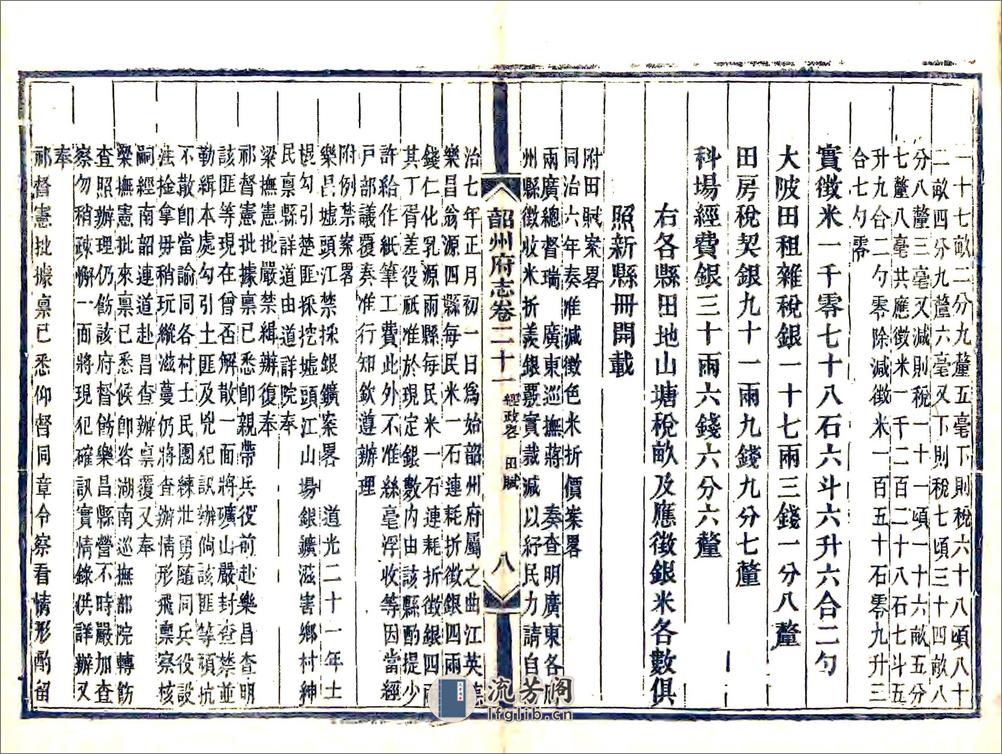 一十七畝二分九釐五毫下則稅六十八頃八十
二畝四分九釐六毫又下則稅七頃三十四畝八
分八釐三毫又減則稅一十一頃一十六畝五分
七釐八毫共應徵米一千二百二十八石七斗五
升九合二勺零除減徵米一百五十石零九升三
合七勺零
實徵米一千零七十八石六斗六升六合二勺
大陂田租雜稅銀一十七兩三錢一分八釐
田房稅契銀九十一兩九錢九分七釐
科場經費銀三十兩六錢六分六釐
右各縣田地山塘稅畝及應徵銀米各數俱
照新縣冊開載
附田賦案畧
同治六年奏准減徵色米折價案畧
兩廣總督瑞 廣東巡撫蔣 奏查明廣東各
州縣徵收米折羨銀覈實裁減以紓民力請自
韶州府志卷二十一 經政畧 田賦 八
治七年正月初一日爲始韶州府屬之曲江英德
樂昌翁源四縣每民米一石連耗折徵銀四兩
錢仁化乳源兩縣每民米一石連耗折徵銀四兩
其丁胥差役祇准於現定銀數內由該縣酌提少
許給作紙筆工費此外不准絲毫浮收等因當經
戶部議覆奏准行知欽遵辦理
附例禁案畧
樂昌墟頭江禁採銀鑛案畧 道光二十一年土
棍勾引楚匪採挖墟頭江山場銀鑛滋害鄉村紳
民稟縣詳道由道詳院奉
梁撫憲批嚴禁緝辦復奉
祁督憲批據稟已悉卽親帶兵役前赴樂昌查明
該匪等現在曾否解散一面將礦山嚴封查禁並
勒緝本處勾引土匪及兇犯訊辦倘該匪等頑抗
不散卽當諭同各村士民團練壯勇隨同兵役設
法捡拿毋稍玩縱滋蔓仍將查辦情形飛稟察核
嗣經南韶連道赴昌查辦稟覆又奉
梁撫憲批來稟已悉候卽咨湖南巡撫部院轉飭
查照辦理仍飭該府督飭樂昌縣營不時嚴加查
察勿稍疎懈一面將現犯確訊實情錄供詳辦又
奉
祁督憲批據稟已悉仰督同章令察看情形酌留
流芳阁
lfglib.cn